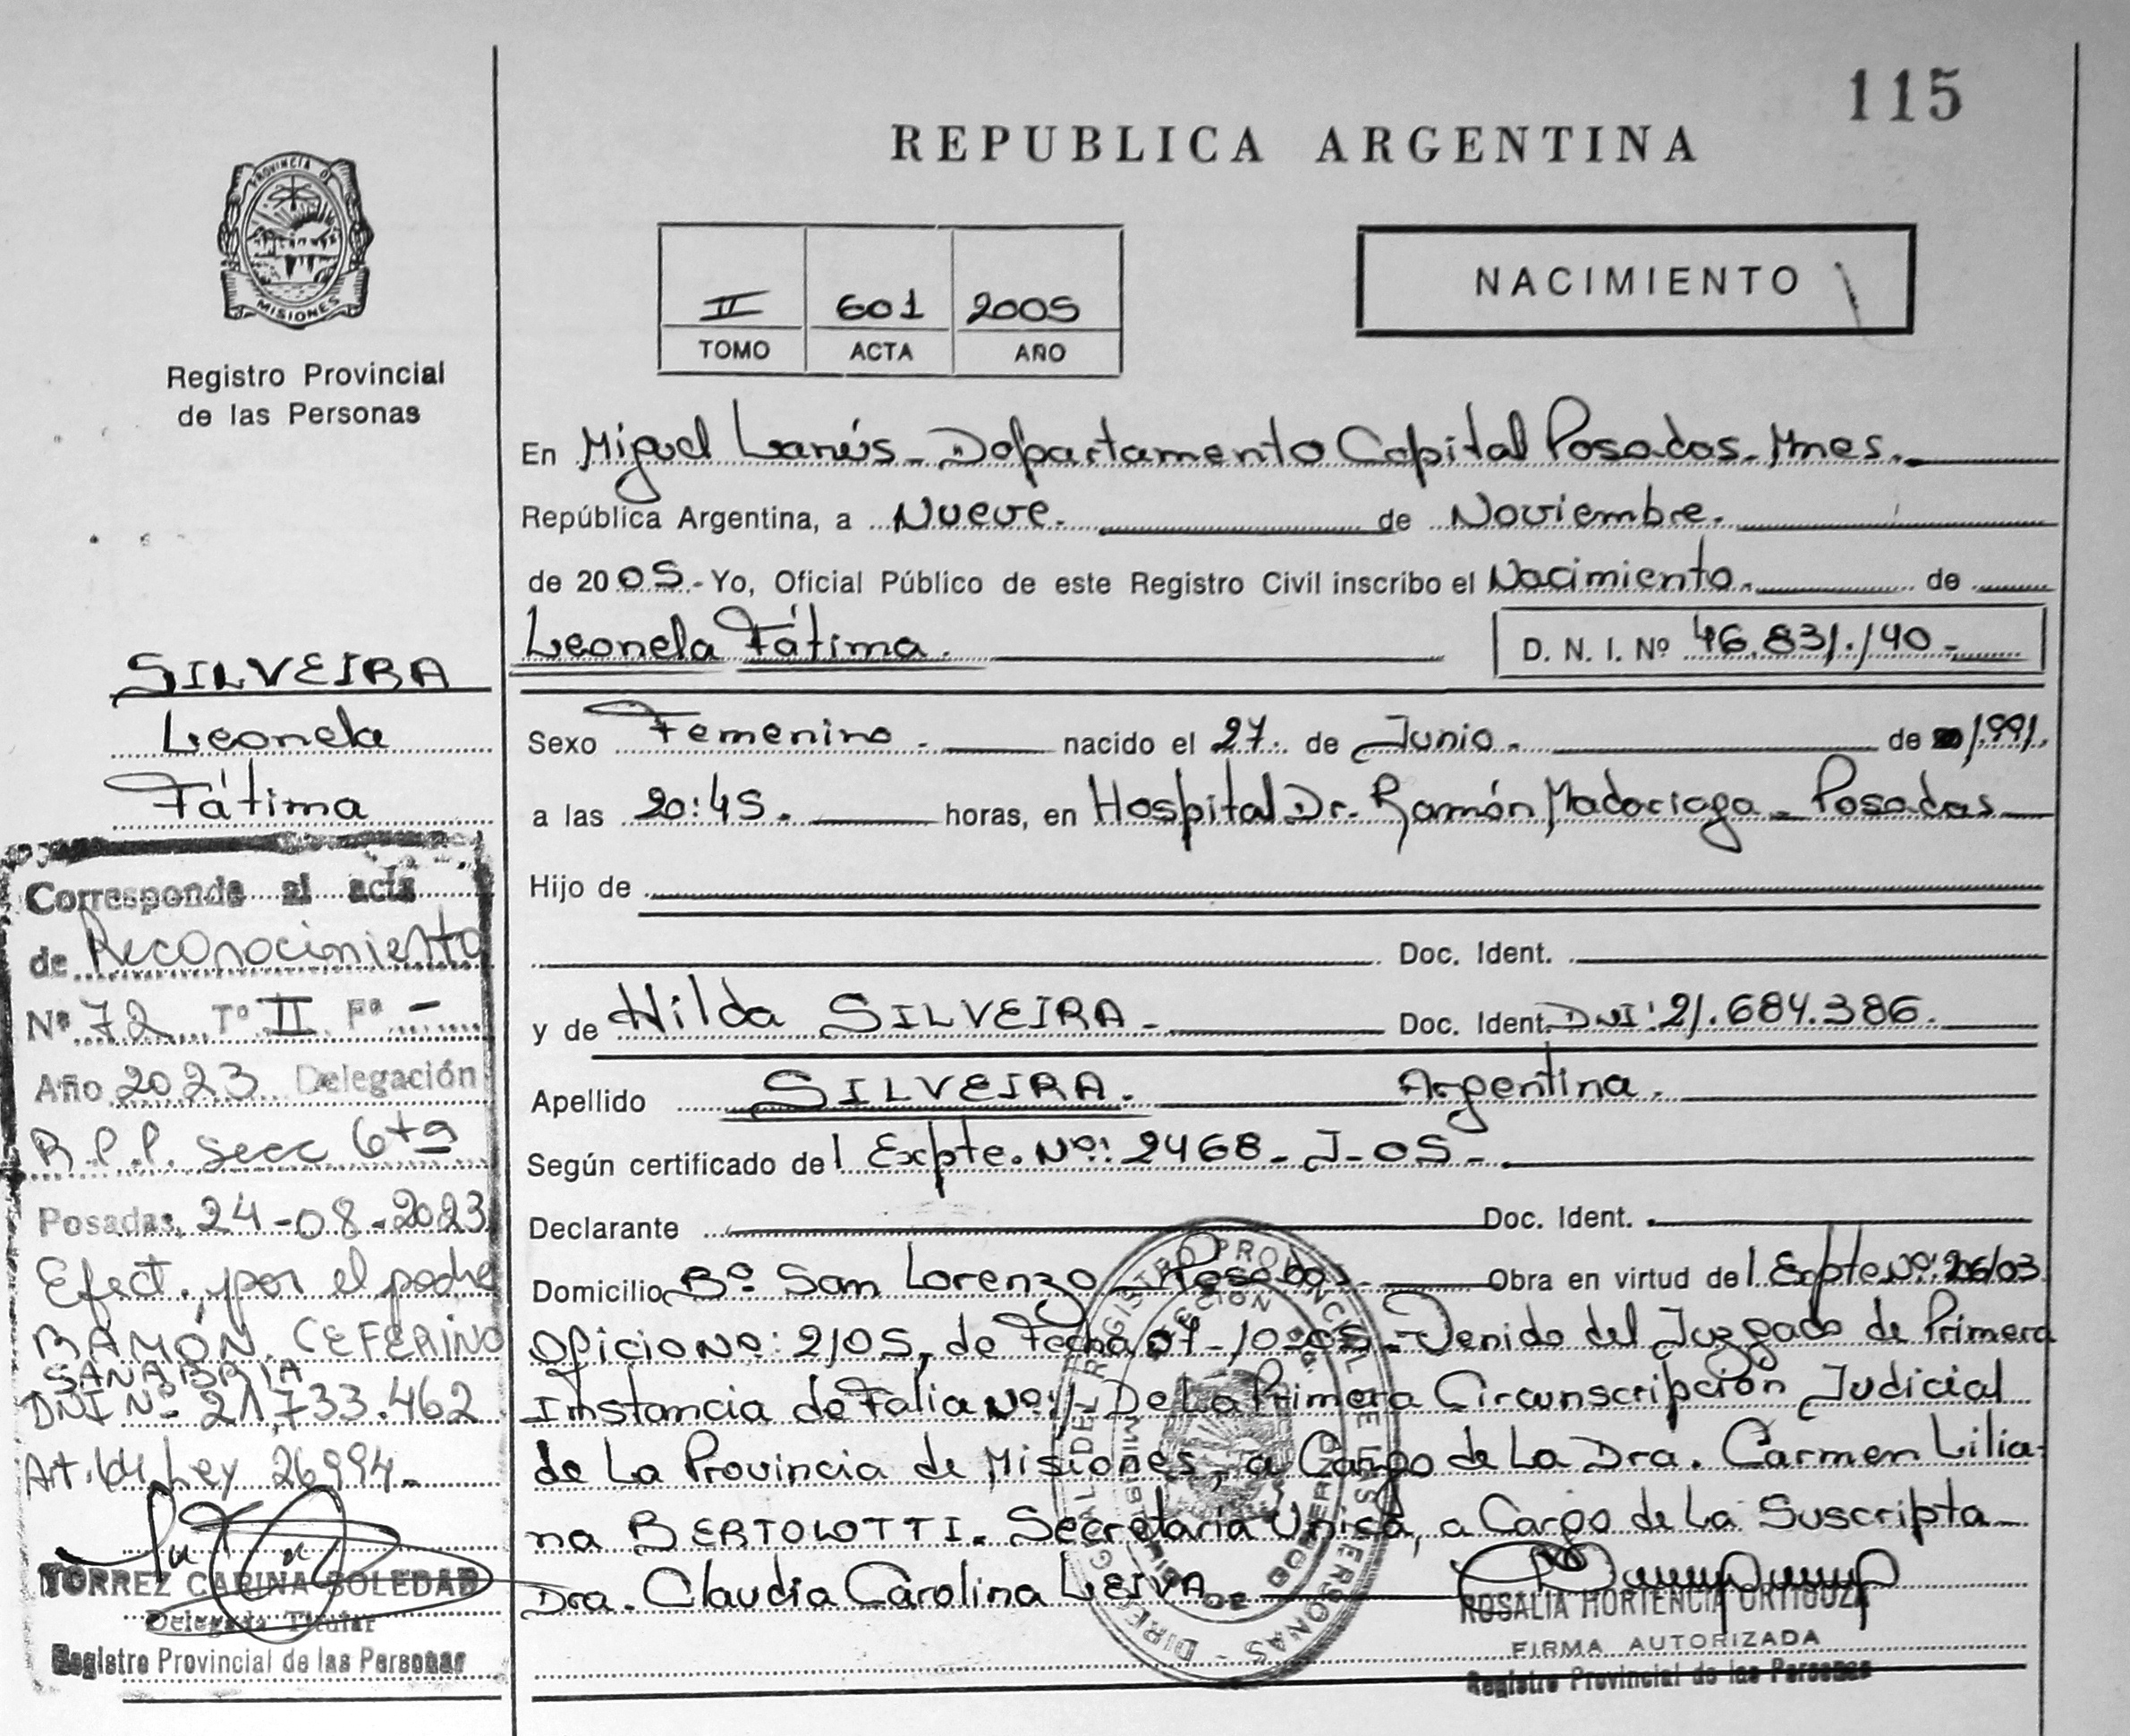 115
REPUBLICA ARGENTINA
PROVINCIA DE
MISIONES
Registro Provincial
de las Personas
II 601 2005
TOMO ACTA AÑO
NACIMIENTO
En Miguel Lanús - Departamento Capital Posadas - Mnes.
República Argentina, a Nueve. de Noviembre.
de 2005.- Yo, Oficial Público de este Registro Civil inscribo el Nacimiento. de
Leonela Fátima. D. N. I. Nº 46.831.140-
Sexo Femenino. nacido el 27. de Junio. de 1.991.
a las 20:45. horas, en Hospital Dr. Ramón Madariaga - Posadas
Hijo de
Doc. Ident.
y de Hilda SILVEIRA. Doc. Ident. DNI: 21.684.386.
Apellido SILVEIRA. Argentina.
Según certificado del Expte. Nº: 2468-J-05-
Declarante Doc. Ident.
Domicilio Bº San Lorenzo - Posadas. Obra en virtud del Expte Nº: 26/03
Oficio Nº: 2105, de Fecha 07-10-05 - Venido del Juzgado de Primera
Instancia de Falia Nº: 1, De La Primera Circunscripción Judicial
de La Provincia de Misiones, a Cargo de La Dra. Carmen Lilia-
na BERTOLOTTI. Secretaría Unica, a Cargo de La Suscripta
Dra. Claudia Carolina LEIVA
ROSALIA HORTENCIA ORTIGOZA
FIRMA AUTORIZADA
Registro Provincial de las Personas
SILVEIRA
Leonela
Fátima
Corresponde al acta
de Reconocimiento
Nº 72 Tº II Fº -
Año 2023 Delegación
R.P.P. secc 6ta
Posadas, 24-08-2023
Efect. por el padre
RAMÓN CEFERINO
SANABRIA
DNI Nº 21.733.462
Art. Ley 26994.
TORREZ CARINA SOLEDAD
Delegada Titular
Registro Provincial de las Personas